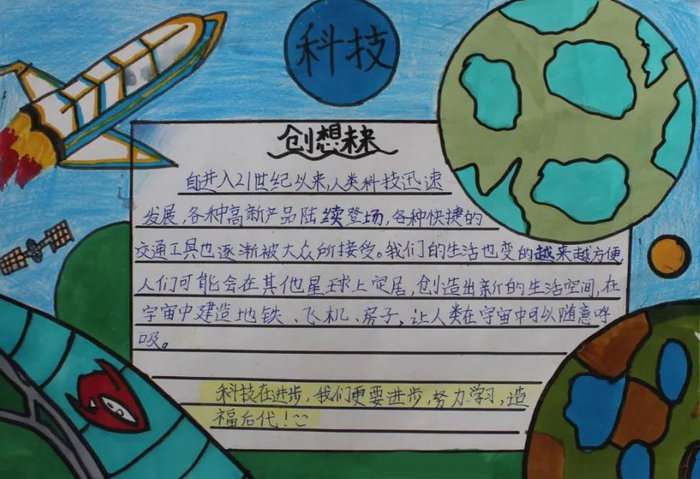 科技
创想未来
自进入21世纪以来,人类科技迅速
发展,各种高新产品陆续登场,各种快捷的
交通工具也逐渐被大众所接受。我们的生活也变的越来越方便,
人们可能会在其他星球上定居,创造出新的生活空间,在
宇宙中建造地铁、飞机、房子,让人类在宇宙中可以随意呼
吸。
科技在进步,我们更要进步,努力学习,造
福后代!